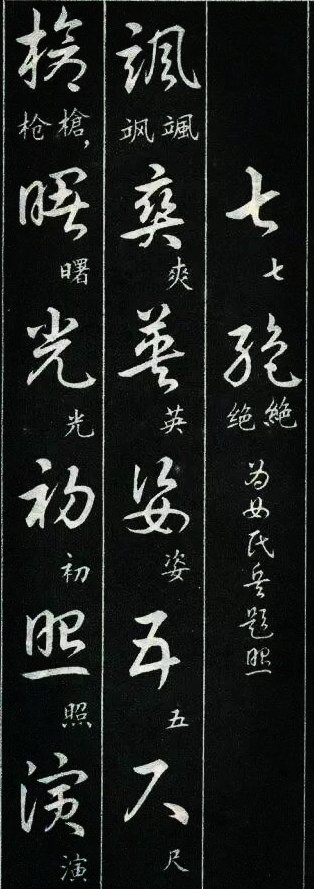 七七絕絕绝为女民兵题照
颯颯飒爽爽英英姿姿五五尺尺
槍槍,枪曙曙光光初初照照演演